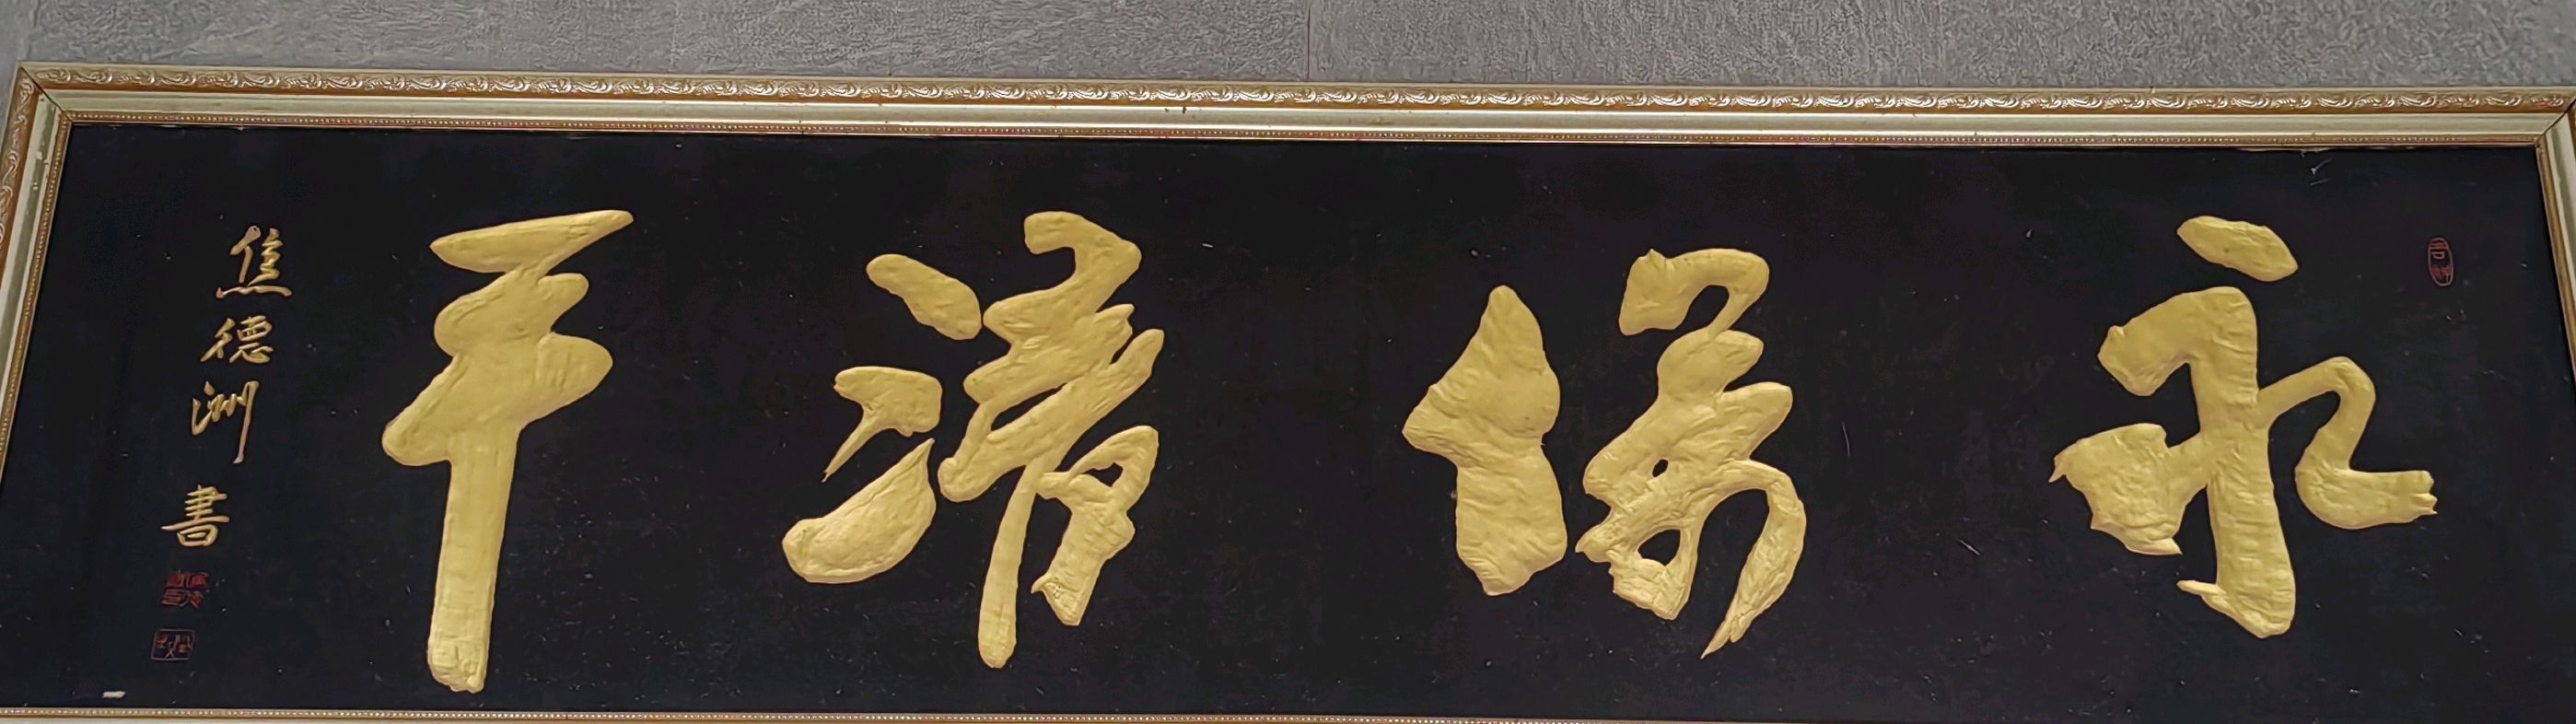 永保清平
焦德洲書